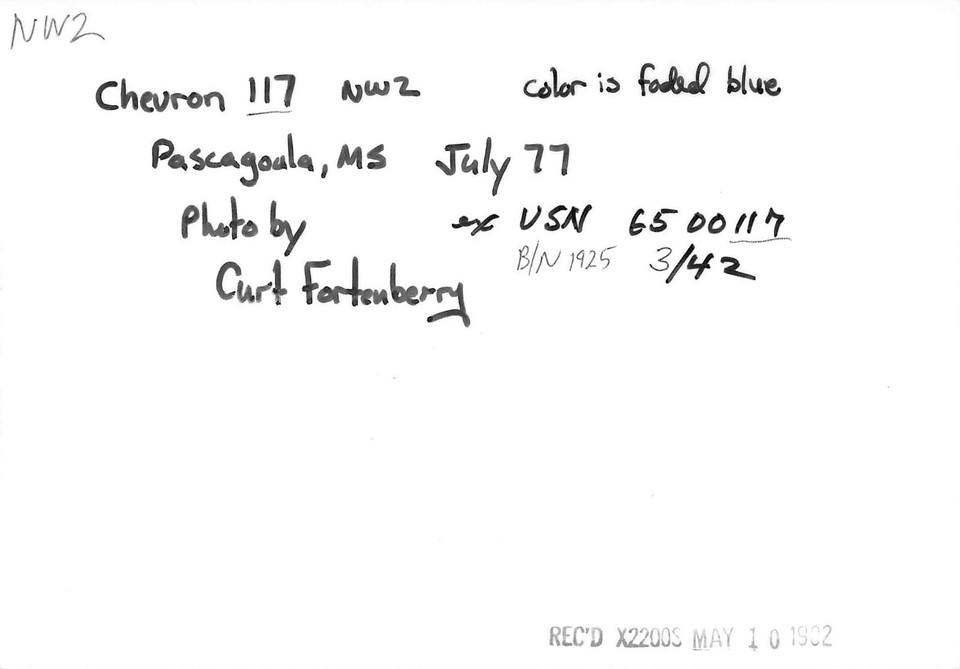 NW2
Chevron 117 NW2 color is faded blue
Pascagoula, MS July 77
Photo by ex USN 65 00117
B/N 1925 3/42
Curt Fortenberry
REC'D X2200S MAY 10 1982